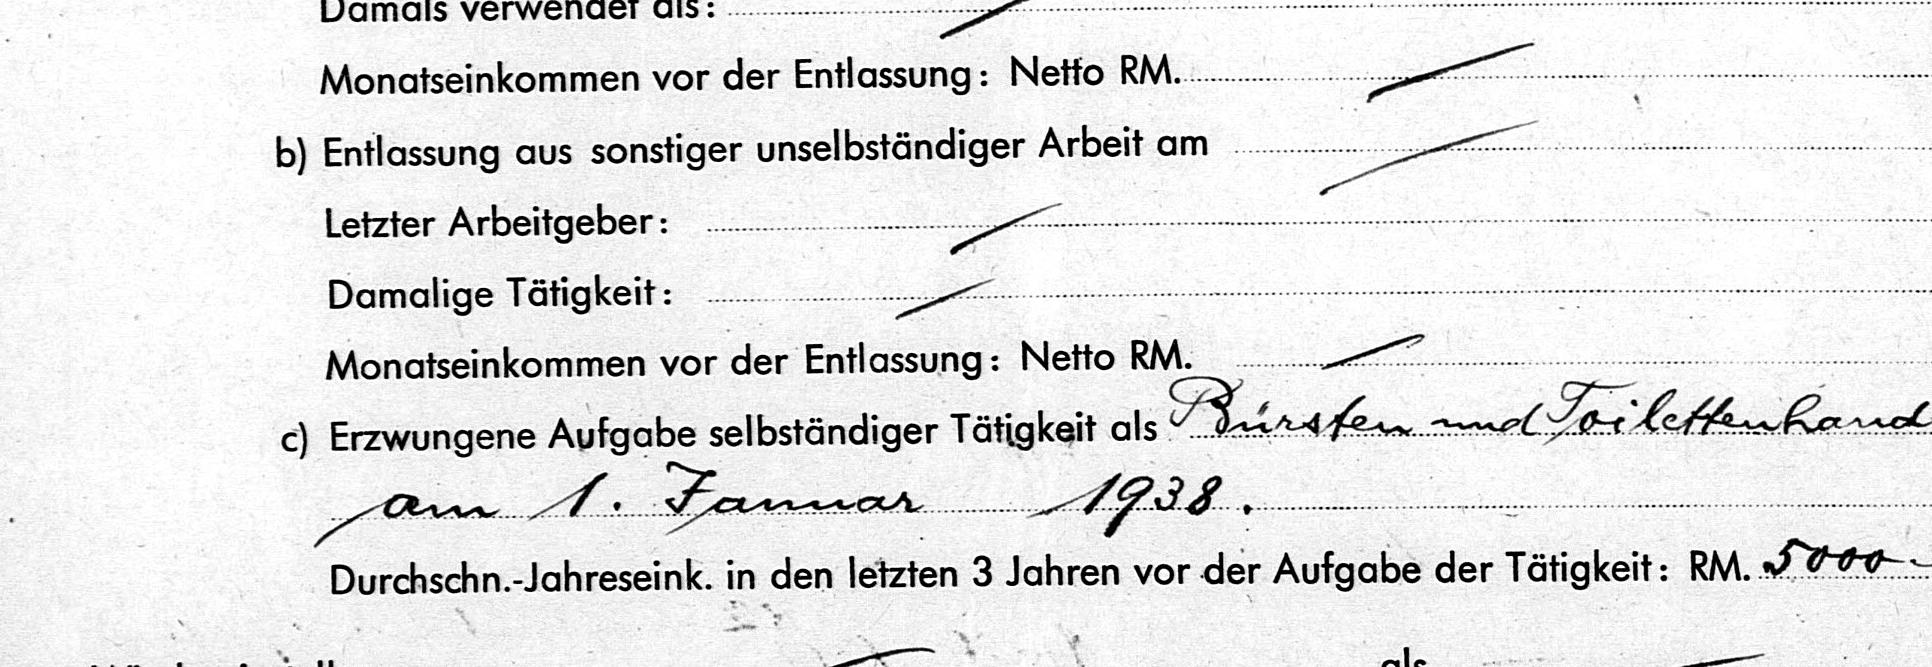 Damals verwendet als:
Monatseinkommen vor der Entlassung: Netto RM.
b) Entlassung aus sonstiger unselbständiger Arbeit am
Letzter Arbeitgeber:
Damalige Tätigkeit:
Monatseinkommen vor der Entlassung: Netto RM.
c) Erzwungene Aufgabe selbständiger Tätigkeit als Bürsten und Toilettenhand
am 1. Januar 1938.
Durchschn.-Jahreseink. in den letzten 3 Jahren vor der Aufgabe der Tätigkeit: RM. 5000-
als